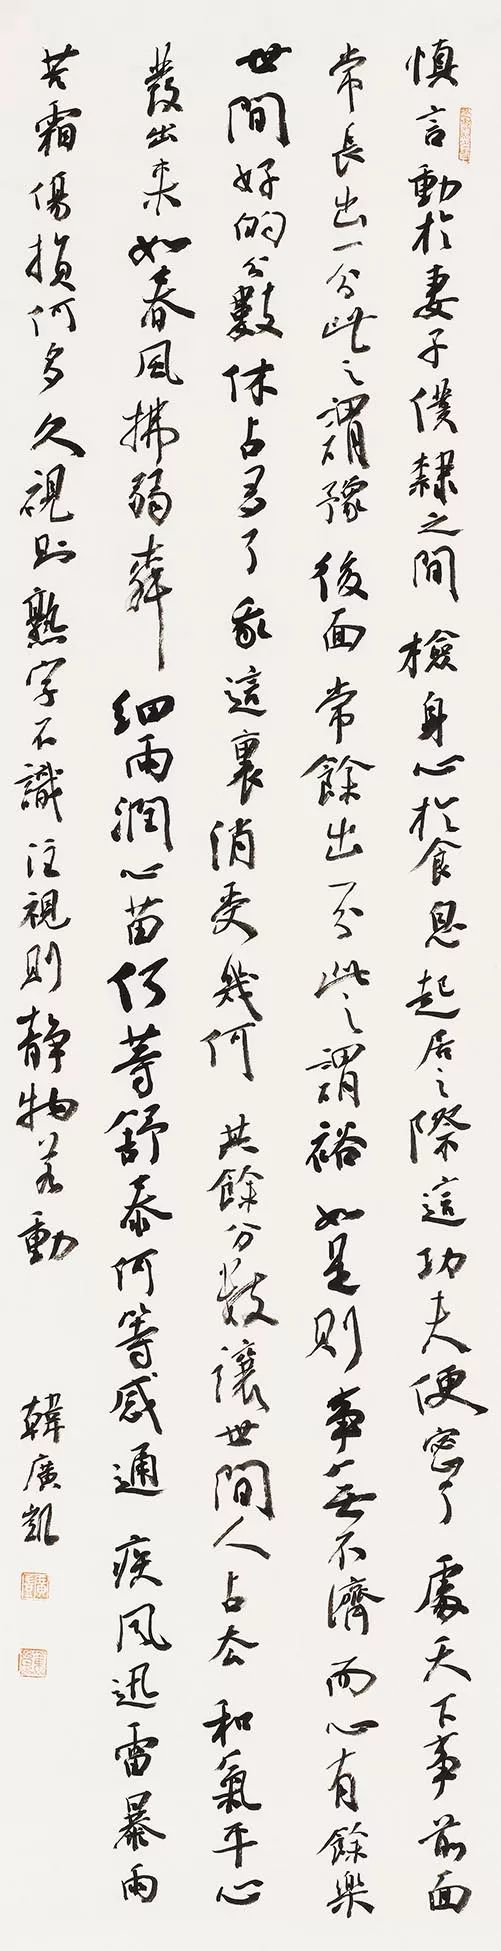 慎言動於妻子僕隸之間檢身心於食息起居之際這功夫便密了處天下事前面
常長出一分此之謂豫後面常餘出一分此之謂裕如是則事無不濟而心有餘樂
世間好的分數休占多了我這裏消受幾何其餘分數讓世間人占去和氣平心
發出来如春風拂弱細雨潤心苗何等舒泰何等感通疾風迅雷暴雨
苦霜傷損何多久視則熟字不識注視則靜物若動
韓廣凱